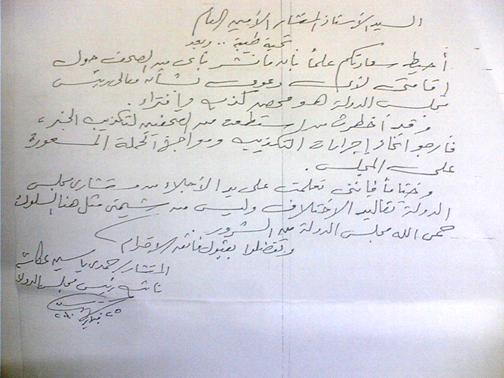 السيد الأستاذ المستشار الأمين العام
تحية طيبة .. وبعد
أحيط سيادتكم علماً بأن ما نشر بأى من الصحف حول
إقامتى لأى دعوى بشأن معالى رئيس
مجلس الدولة هو محض كذب وافتراء.
وقد أخطرت من استطعت من الصحفيين لتكذيب الخبر،
فأرجو اتخاذ إجراءات التكذيب ومواجهة الحملة المسعورة
على المجلس.
وختاماً فإننى تعلمت على يد الأجلاء من مستشارى مجلس
الدولة تقاليد الاختلاف وليس من شيمتى مثل هذا السلوك
حمى الله مجلس الدولة من الشرور
وتفضلوا بقبول فائق الاحترام
المستشار/ حمدى ياسين عكاشة
نائب رئيس مجلس الدولة